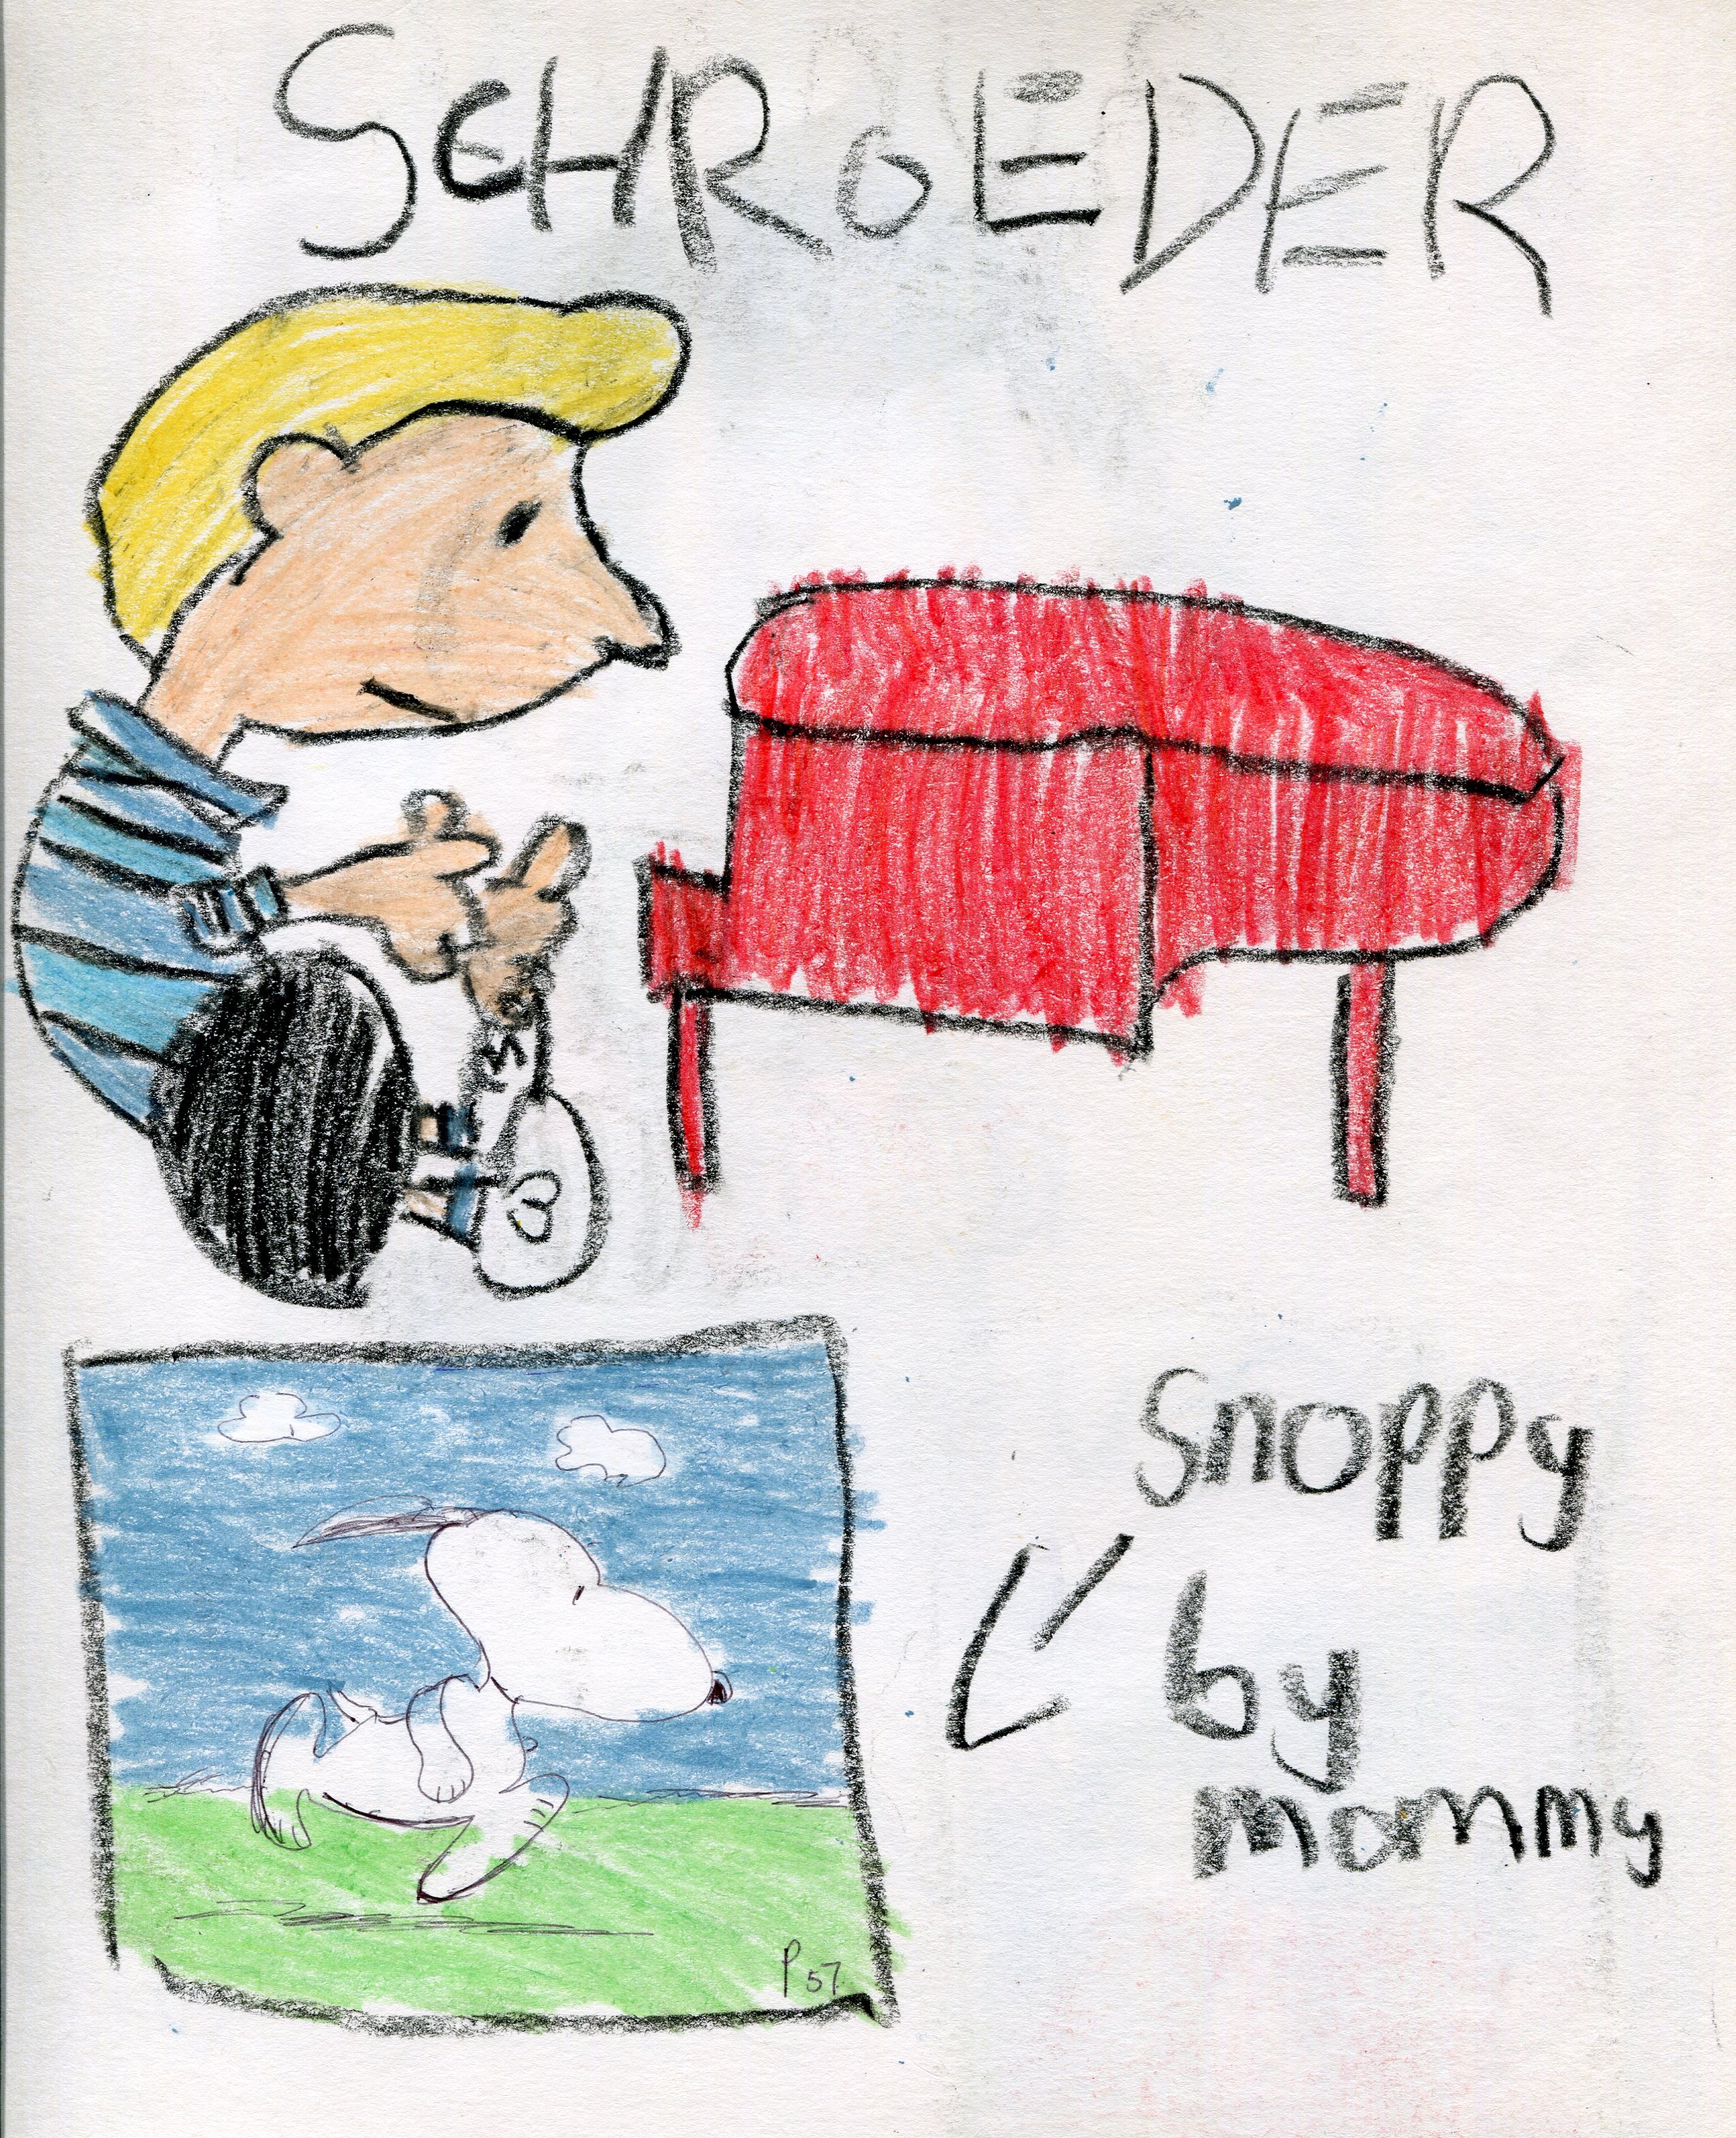 SCHROEDER
Snoppy
by
mommy
P 57